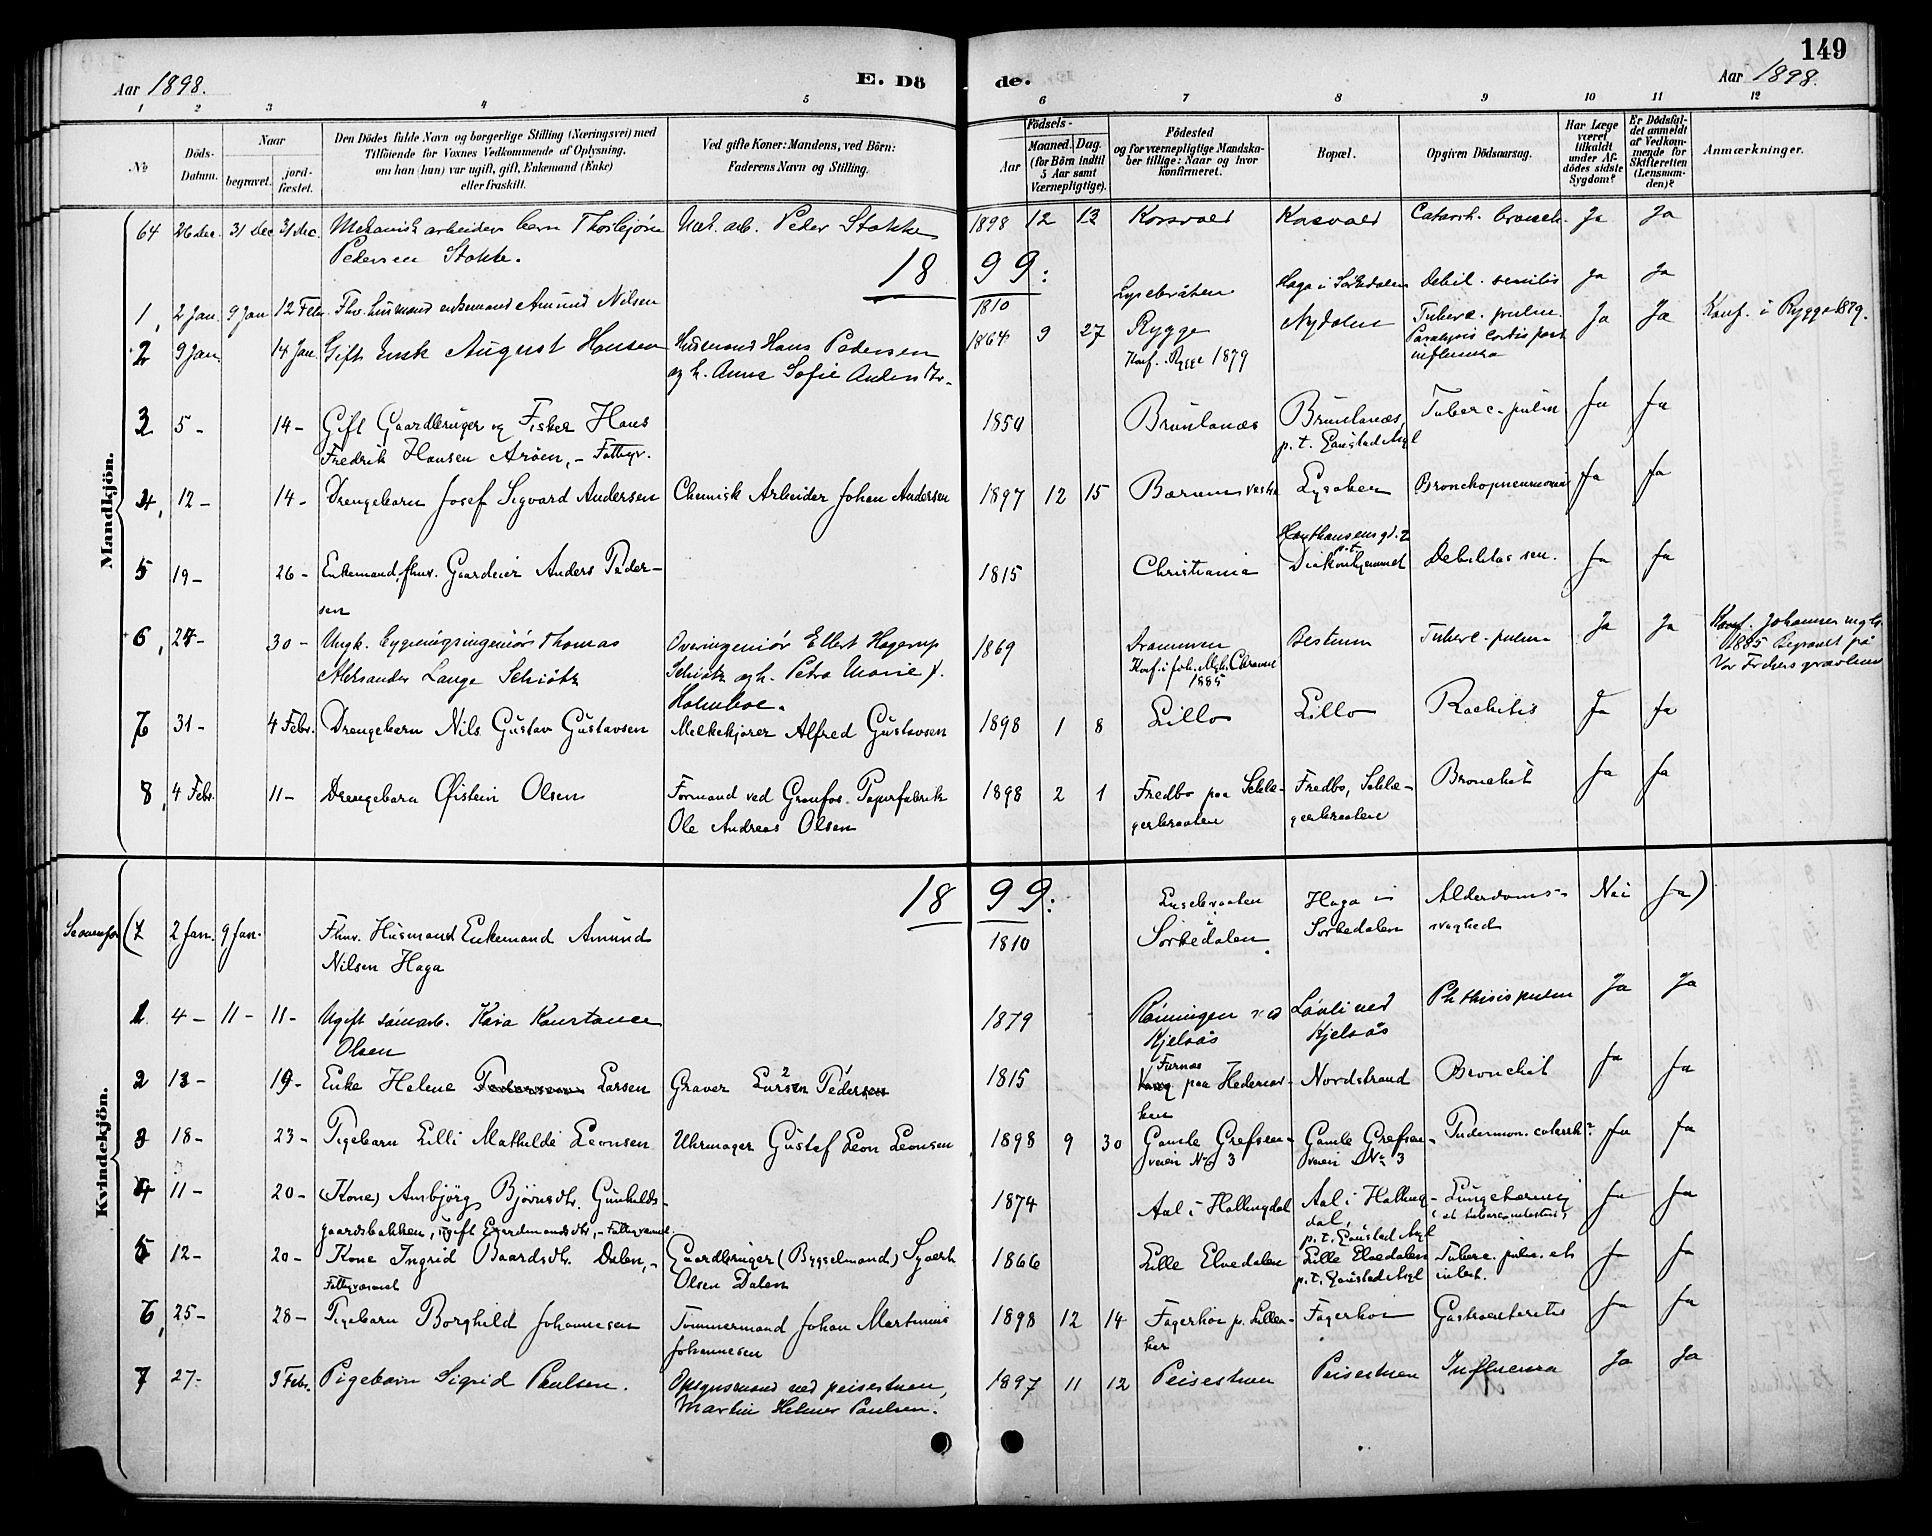 149
Aar 1898. E. Dö de. Aar 1898.
1 2 3 4 5 6 7 8 9 10 11 12
No
Döds-Datum.
Naar
begravet.
jord-fæstet.
Den Dödes fulde Navn og borgerlige Stilling (Næringsvei) med
Tilföiende for Voxnes Vedkommende af Oplysning,
om han (hun) var ugift, gift, Enkemand (Enke)
eller fraskilt.
Ved gifte Koner: Mandens, ved Börn:
Faderens Navn og Stilling.
Födsels-
Aar
Maaned. Dag.
(for Börn indtil
5 Aar samt
Værnepligtige).
Födested
og for værnepligtige Mandska-
ber tillige: Naar og hvor
konfirmeret.
Bopæl.
Opgiven Dödsaarsag.
Har Læge
været
tilkaldt
under Af-
dödes sidste
Sygdom?
Er Dödsfal-
det anmeldt
af Vedkom-
mende for
Skifteretten
(Lensman-
den)?
Anmærkninger.
Mandkjön.
64 26 dec. 31 dec 31 dec. Mekanisk arbeiders barn Thorbjørn Mek. arb. Peder Stokke 1898 12 13 Korsvold Korsvold Catarrh. bronch. Ja Ja
Pedersen Stokke.
18 99:
1, 2 Jan. 9 Jan 12 Febr. Fhv. husmand enkemand Amund Nilsen 1810 Lysebråten Haga i Sørkedalen Debil. senilis Ja Ja
2 9 Jan. 14 Jan. Gift August Hansen Husmand Hans Pedersen 1864 9 27 Rygge Nydalen Tuberc. pulm. Ja Ja Konf. i Rygge 1879.
og h. Anne Sofie Konf. Rygge 1879 Paralysis cordis post influenza
3 5 - 14 - Gift Gaardbruger og Fisker Hans 1850 Brunlanæs Brunlanæs, Tuberc. pulm Ja Ja
Fredrik Hansen Arøen, - Fattigv. p. t. Gaustad Asyl
4, 12 - 14 - Drengebarn Josef Sigvard Andersen Chemisk Arbeider Johan Andersen 1897 12 15 Bærum vestre Lysaker Bronchopneumonie Ja Ja
5 19 - 26 - Enkemand, fhnv. Gaardeier Anders Peder- 1815 Christiania p.t. Diakonhjemmet Debilitas sen. Ja Ja
sen
6, 27 - 30 - Ungk. bygningsingeniør Thomas Overingeniør Ellert Hagerup 1869 Drammen Bestum Tuberc. pulm Ja Ja Konf. Johannes mgh.
Aleksander Lange Schiøtz Schiøtz og h. Petra Marie f. Konf. i Joh. Mgh. Chrania 1885 1885 Begravet på
Holmboe. Vor Frelsers gravlund
7 31 - 4 Febr. Drengebarn Nils Gustav Gustavsen Melkekjører Alfred Gustavsen 1898 1 8 Lillo Lillo Rachitis Ja Ja
8, 4 Febr. 11 - Drengebarn Øistein Olsen Formand ved Granfos Papirfabrik 1898 2 1 Fredbo paa Sekle- Fredbo, Sekle- Bronchit Ja Ja
Ole Andreas Olsen gerbraaten gerbraaten
Kvindekjön.
18 99:
2 Jan. 9 Jan. Fhnv. Husmand Enkemand Amund 1810 Lysebraaten i Haga i Alderdoms- Nei Ja)
Nilsen Haga Sørkedalen Sørkedalen svaghed
1 4 - 11 - 11 - Ugift sömarb. Kaia Konstance 1879 Rönningen ved Lövli ved Phthisis pulm Ja Ja
Olsen Kjelsås Kjelsås
2 13 - 19 - Enke Helene Larsen Graver Larsen Pedersen 1815 Furnæs paa Hedemar- Nordstrand Bronchit Ja Ja
ken
3 18 - 23 - Pigebarn Lilli Mathilde Leonsen Uhrmager Gustaf Leon Leonsen 1898 9 30 Gamle Grefsen- Gamle Grefsen- catarrh? Ja Ja
veien No 3 veien No 3
4 11 - 20 - (Kone) Ambjörg Björnsdtr. Gunhilds- 1874 Aal i Hallingdal Aal i Halling- Lungebetænd. Ja Ja
gaardsbakken, ugift - Fattigvæsenet. dal, p. t. Gaustad Asyl
5 12 - 20 - Kone Ingrid Baardsdtr. Dalen, - Gaardbruger (Bygselmand) Syvert 1866 Lille Elvedalen Lille Elvedalen Tuberc. pulm. et Ja Ja
Fattigvæsenet Olsen Dalen p. t. Gaustad Asyl intest.
6, 25 - 28 - Pigebarn Borghild Johannesen Tømmermand Johan Martinius 1898 12 14 Fagerhøi p. Lillea- Fagerhøi Gastroenterites Ja Ja
Johannesen ker
7 27 - 3 Febr. Pigebarn Sigrid Paulsen. Opsynsmand ved peisestuen, 1897 11 12 Peisestuen Peisestuen Influenza Ja Ja
Martin Helmer Paulsen.